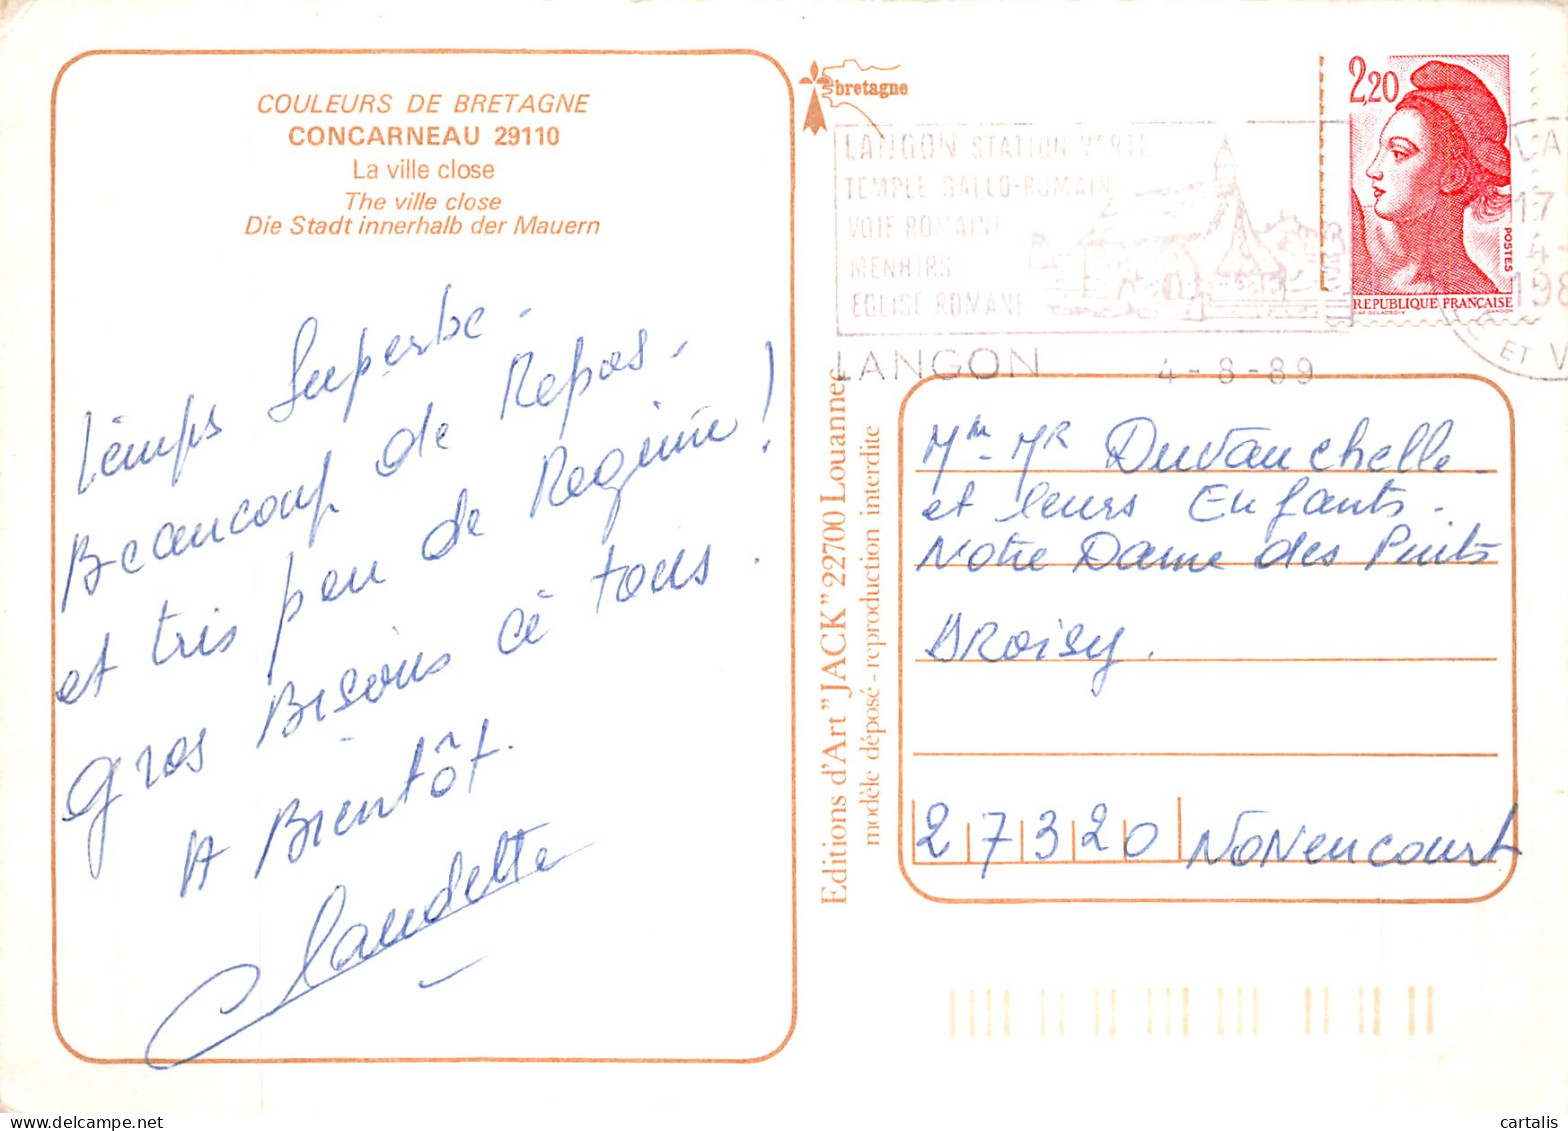 COULEURS DE BRETAGNE
CONCARNEAU 29110
La ville close
The ville close
Die Stadt innerhalb der Mauern
Temps Superbe -
Beaucoup de Repos -
et tris peu de Regime !
Gros Bisous à tous .
A Bientôt.
Claudette
bretagne
LANGON STATION VERTE
TEMPLE GALLO-ROMAIN
VOIE ROMAINE
MENHIRS
EGLISE ROMANE
LANGON 4-8-89
2,20
POSTES
REPUBLIQUE FRANÇAISE
GANDON
17
4-
198
ET V
Editions d'Art "JACK" 22700 Louannec
modèle déposé - reproduction interdite
Mme MR Duvauchelle -
et leurs Enfants -
Notre Dame des Puits
DROISY.
27320 NONencourt
cartalis